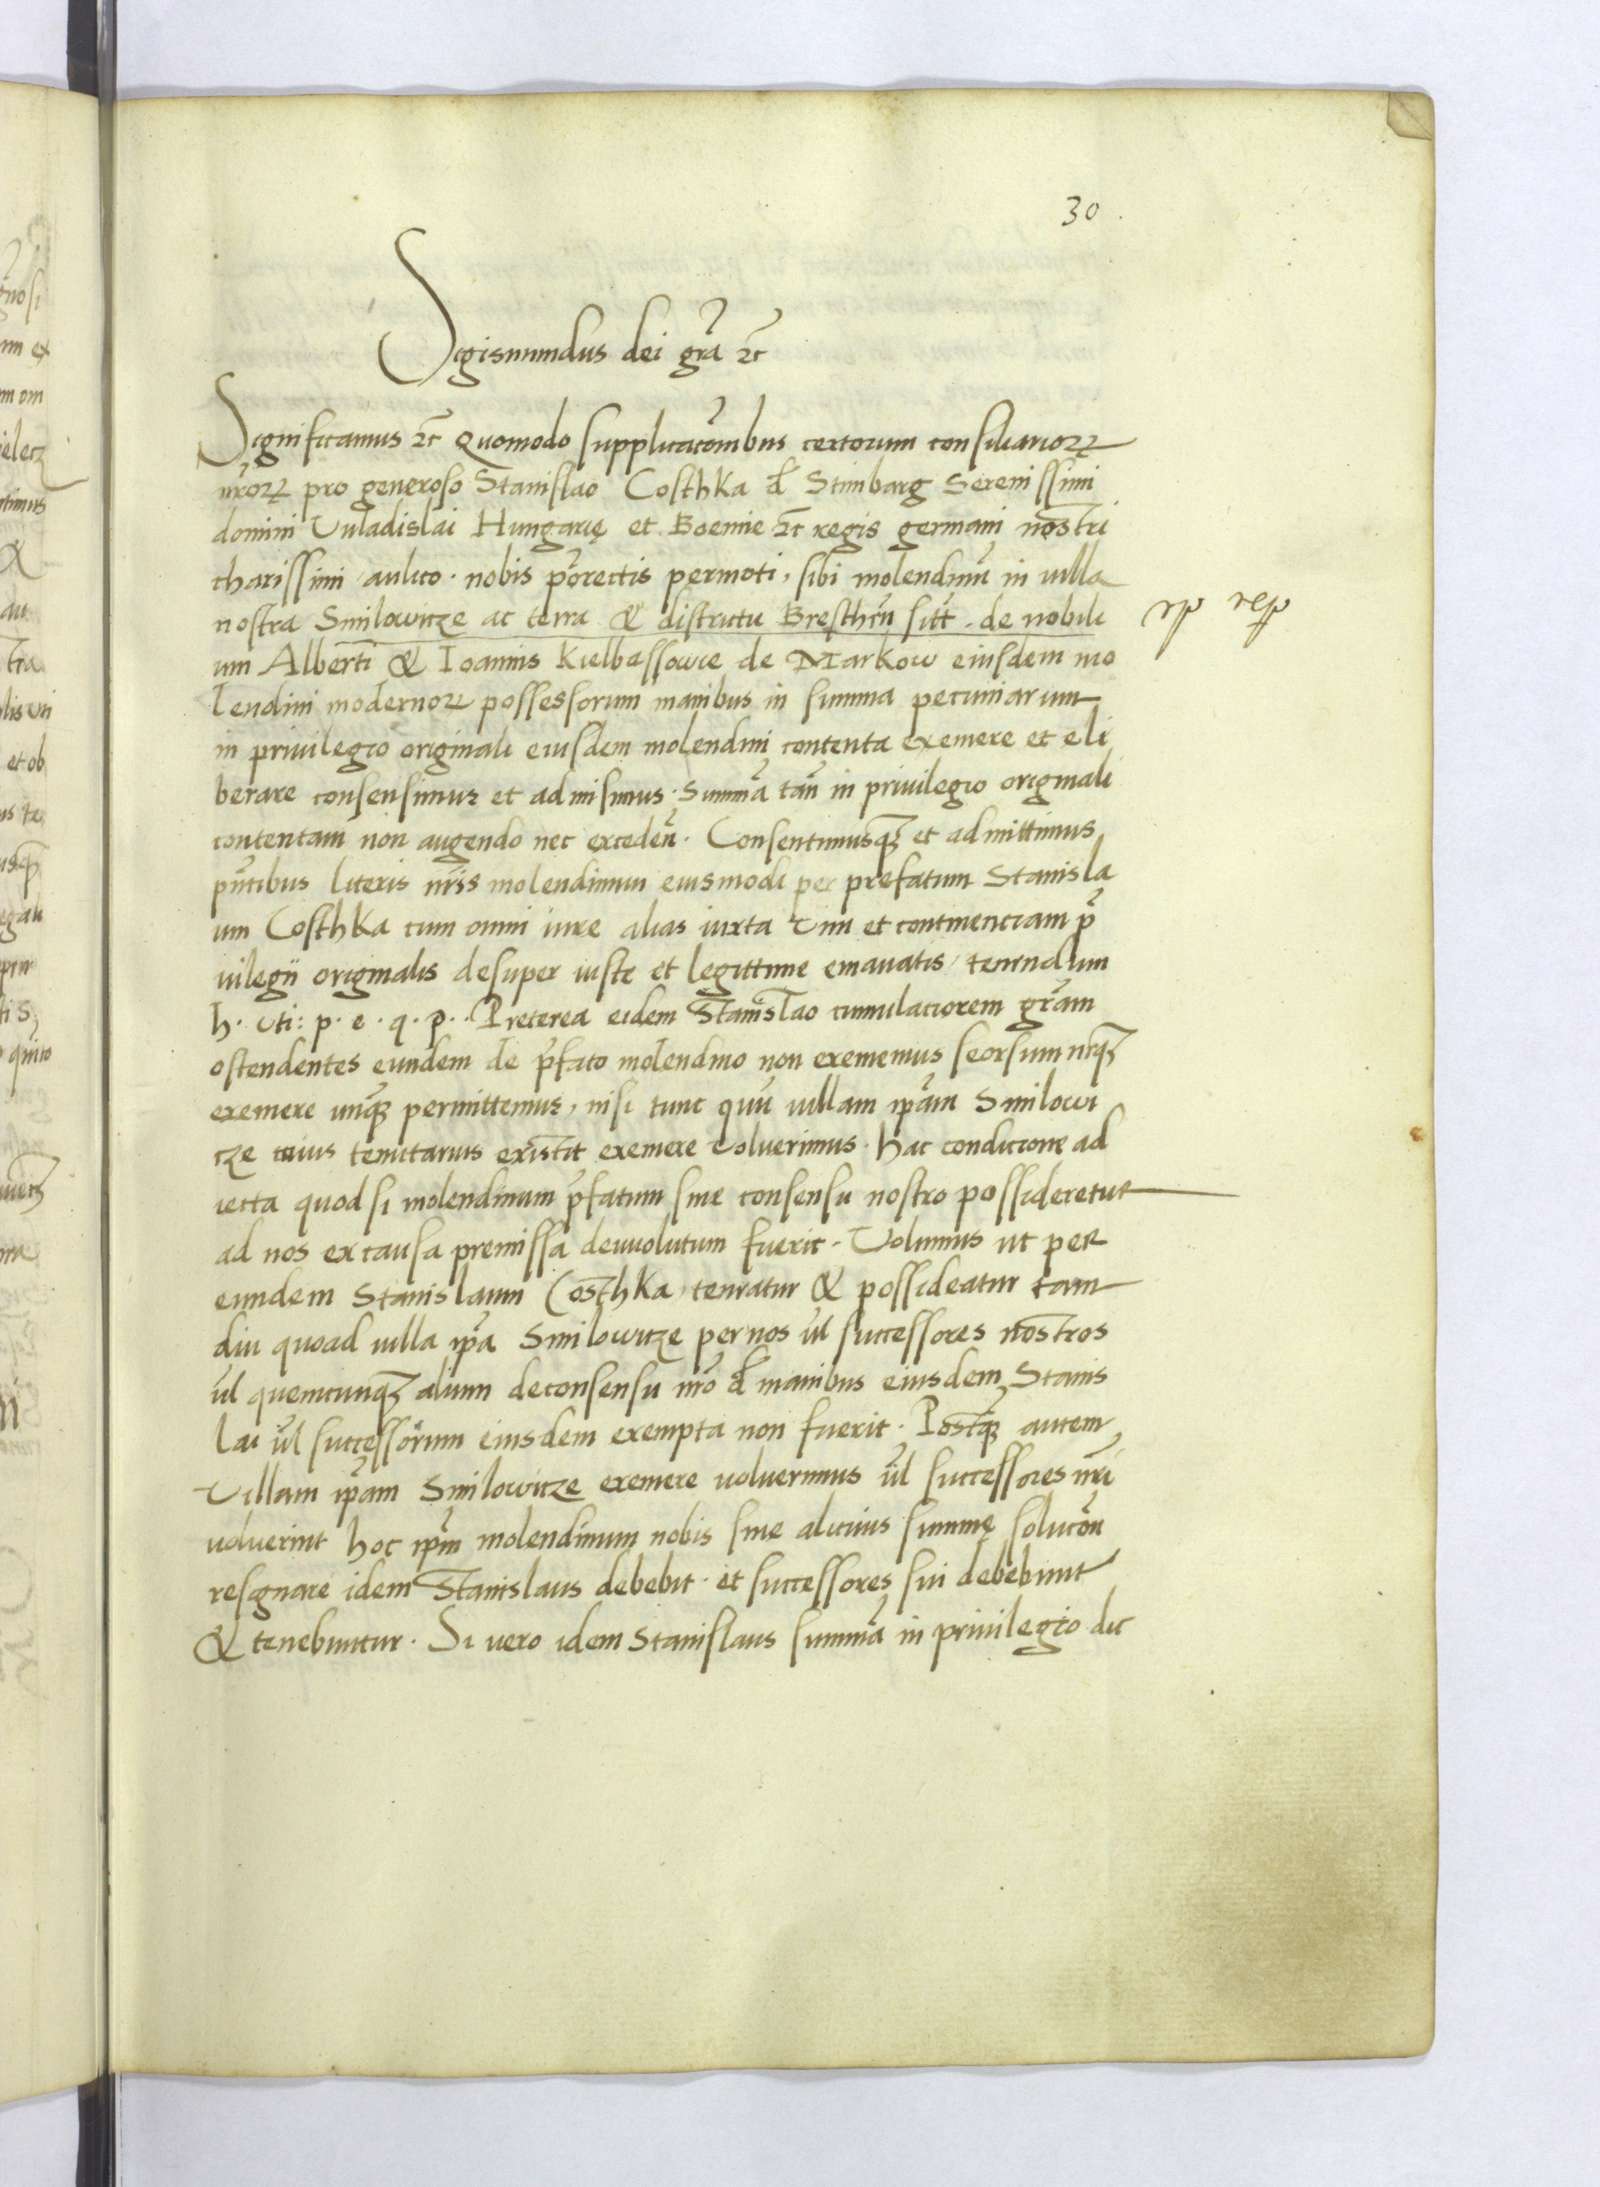 30
Sigismundus dei grã ꝛc̃
Significamus ꝛc̃ Quomodo supplicacõnibus certorum consiliarioꝝ
nr̃oꝝ pro generoso Stanislao Costhka de Stimbarg Serenissimi
domini Vuladislai Hungarię et Boemie ꝛc̃ regis germani nostri
charissimi aulico · nobis porrectis permoti, sibi molendinũ in uilla
nostra Smilowicze ac terra & districtu Bresthen̄ sitt̃ . de nobili
um Alberti & Ioannis Kielbassowie de Markow eiusdem mo
lendini modernoꝝ possessorum manibus in summa pecuniarum
in priuilegio originali eiusdem molendini contenta exemere et eli
berare consensimus et admisimus · Summã tam̃ in priuilegio originali
contentam non augendo nec exceden̄ · Consentimusqꝫ et admittimus
pñtibus literis nr̃is molendinum eiusmodi per prefatum Stanisla
um Costhka cum omni iure alias iuxta vim et continenciam pri
uilegii originalis desuper iuste et legittime emanatis tenendum
h · vti: p · e · q · p · Preterea eidem Stanislao cumulaciorem gr̃am
ostendentes eundem de p̃fato molendino non exememus seorsum neqꝫ
exemere unqꝫ permittemus, nisi tunc quũ uillam ip̃am Smilowi
cze cuius tenutarius existit exemere voluerimus · hac condicione ad
iecta quod si molendinum p̃fatum sine consensu nostro possideretur
ad nos ex causa premissa deuuolutum fuerit · Volumus ut per
eundem Stanislaum Costhka teneatur & possideatur tam
diu quoad uilla ip̃a Smilowicze per nos ul̃ successores nostros
ul̃ quemcunqꝫ alium de consensu nr̃o de manibus eiusdem Stanis
lai ul̃ successorum eiusdem exempta non fuerit · Postqꝫ autem
Villam ip̃am Smilowicze exemere uoluerimus ul̃ successores nr̃i
uoluerint hoc ip̃m molendinum nobis sine alicuius summę solucõn
resignare idem Stanislaus debebit · et successores sui debebunt
& tenebuntur · Si uero idem Stanislaus summã in priuilegio dic